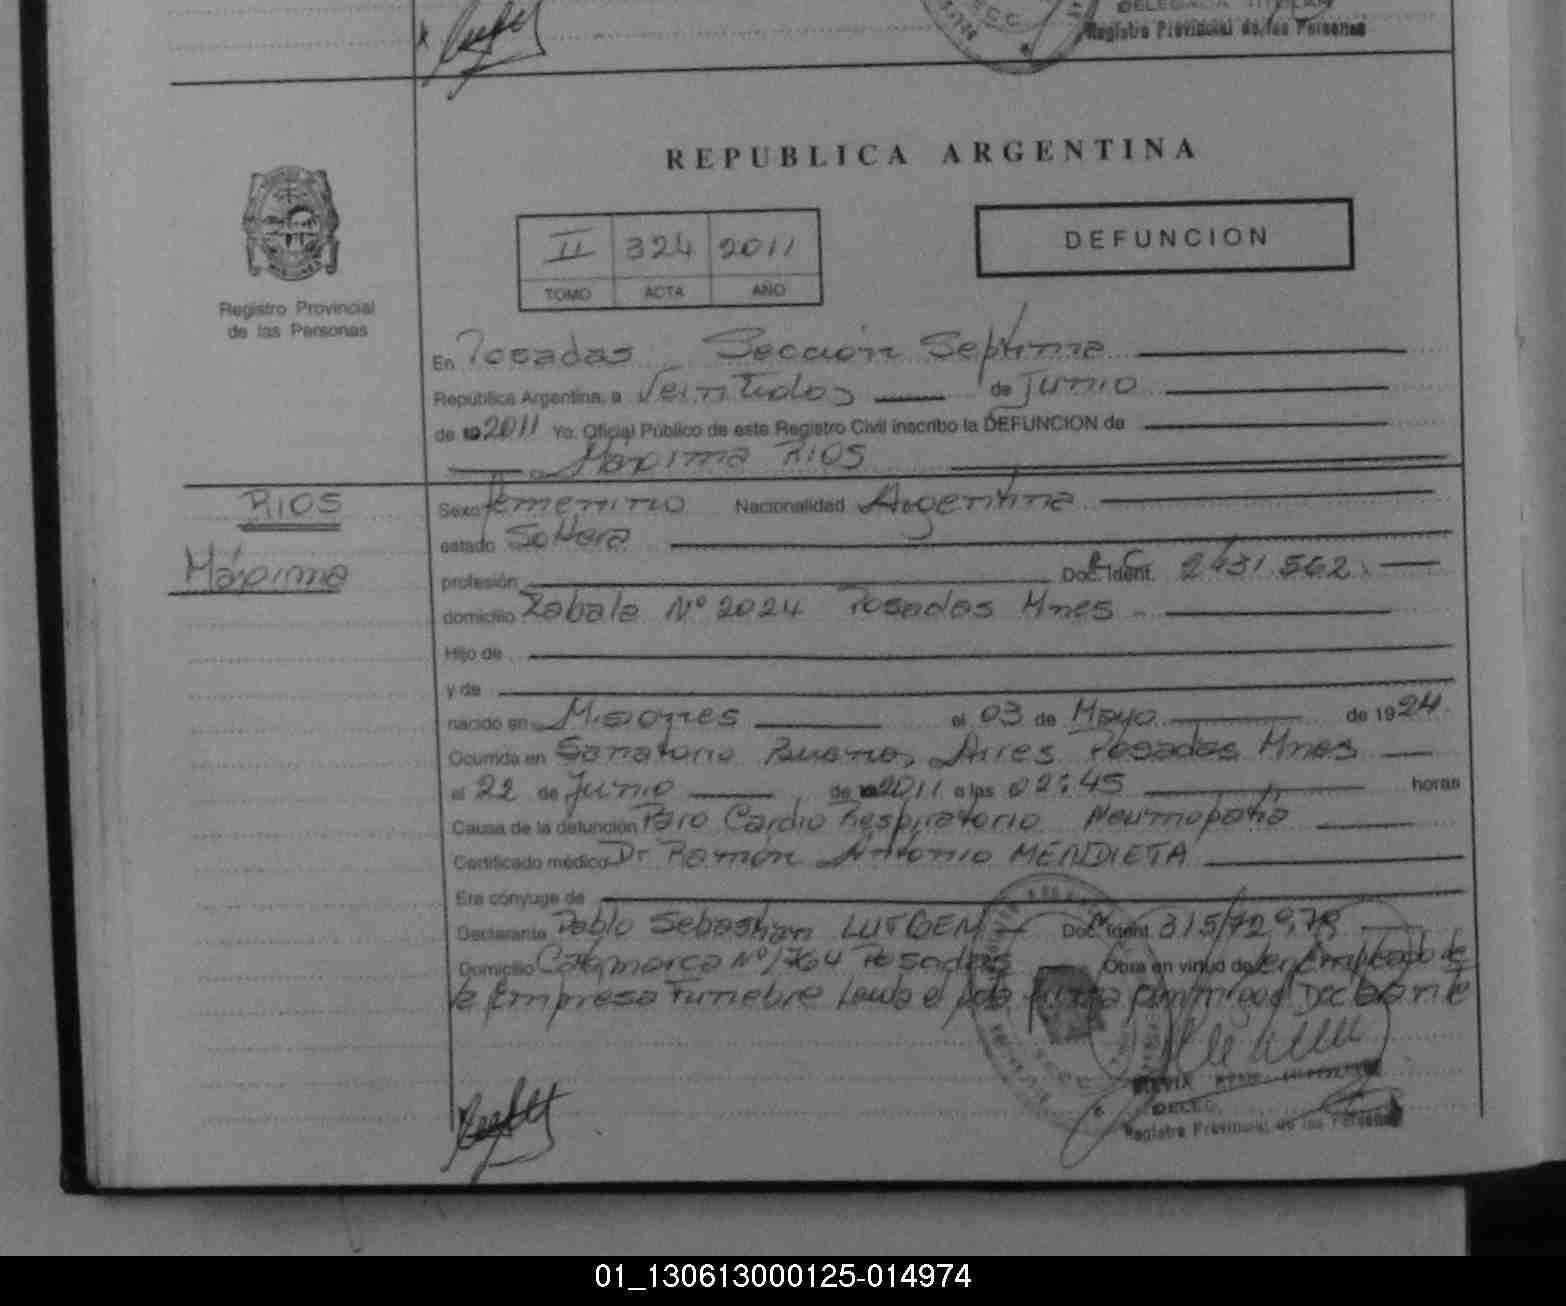 DELEGADA TITULAR
Registro Provincial de las Personas
REPUBLICA ARGENTINA
II 324 2011
TOMO ACTA AÑO
DEFUNCION
Registro Provincial
de las Personas
En Posadas Sección Septima
República Argentina, a Veintidos de Junio
de 19 2011 Yo, Oficial Público de este Registro Civil inscribo la DEFUNCION de
Máxima RIOS
RIOS
Máxima
Sexo femenino Nacionalidad Argentina
estado Soltera
profesión Doc. Ident. 2431.562.
domicilio Zabala Nº 2024 Posadas Mnes
Hijo de
y de
nacido en Misiones el 03 de Mayo de 1924
Ocurrida en Sanatorio Buenos Aires Posadas Mnes
el 22 de Junio de 19 2011 a las 02:45 horas
Causa de la defunción Paro Cardio Respiratorio Neumopatía
Certificado médico Dr Ramón Antonio MENDIETA
Era cónyuge de
Declarante Pablo Sebastian LUTGEN Doc. Ident.
Domicilio Catamarca Nº 1764 Posadas Obra en virtud de ser Empleado de
la Empresa Funebre Leida el Acta firma conmigo el Declarante
DELEG.
Registro Provincial de las Personas
01_130613000125-014974